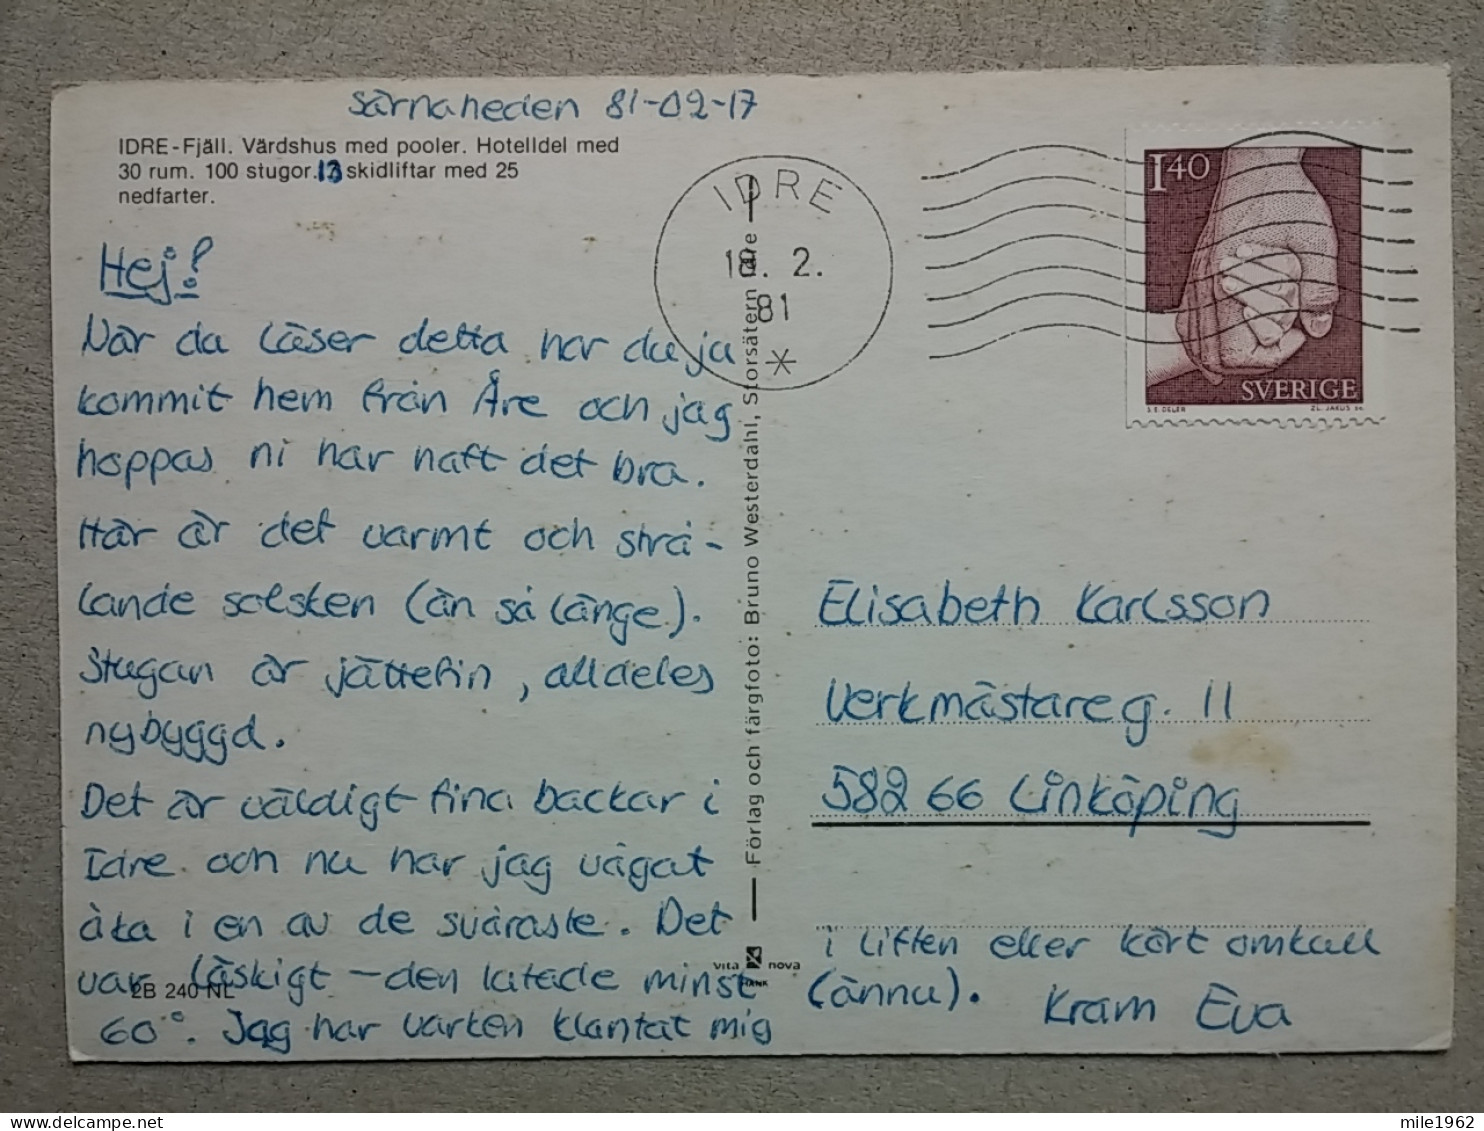 Särnaheden 81-02-17
IDRE-Fjäll. Värdshus med pooler. Hotelldel med
30 rum. 100 stugor. 13 skidliftar med 25
nedfarter.
Hej!
När du läser detta har du ju
kommit hem från Åre och jag
hoppas ni har haft det bra.
Här är det varmt och strå-
lande solsken (än så länge).
Stugan är jättefin, alldeles
nybyggd.
Det är väldigt fina backar i
Idre och nu har jag vågat
åka i en av de svåraste. Det
var läskigt – den lutade minst
60°. Jag har varken klantat mig
2B 240 NL
Förlag och färgfoto: Bruno Westerdahl, Storsätern
vita nova
IDRE
2.
81
1 40
SVERIGE
Elisabeth Karlsson
Verkmästareg. 11
582 66 Linköping
i liften eller kört omkull
(ännu).
Kram Eva
mile1962